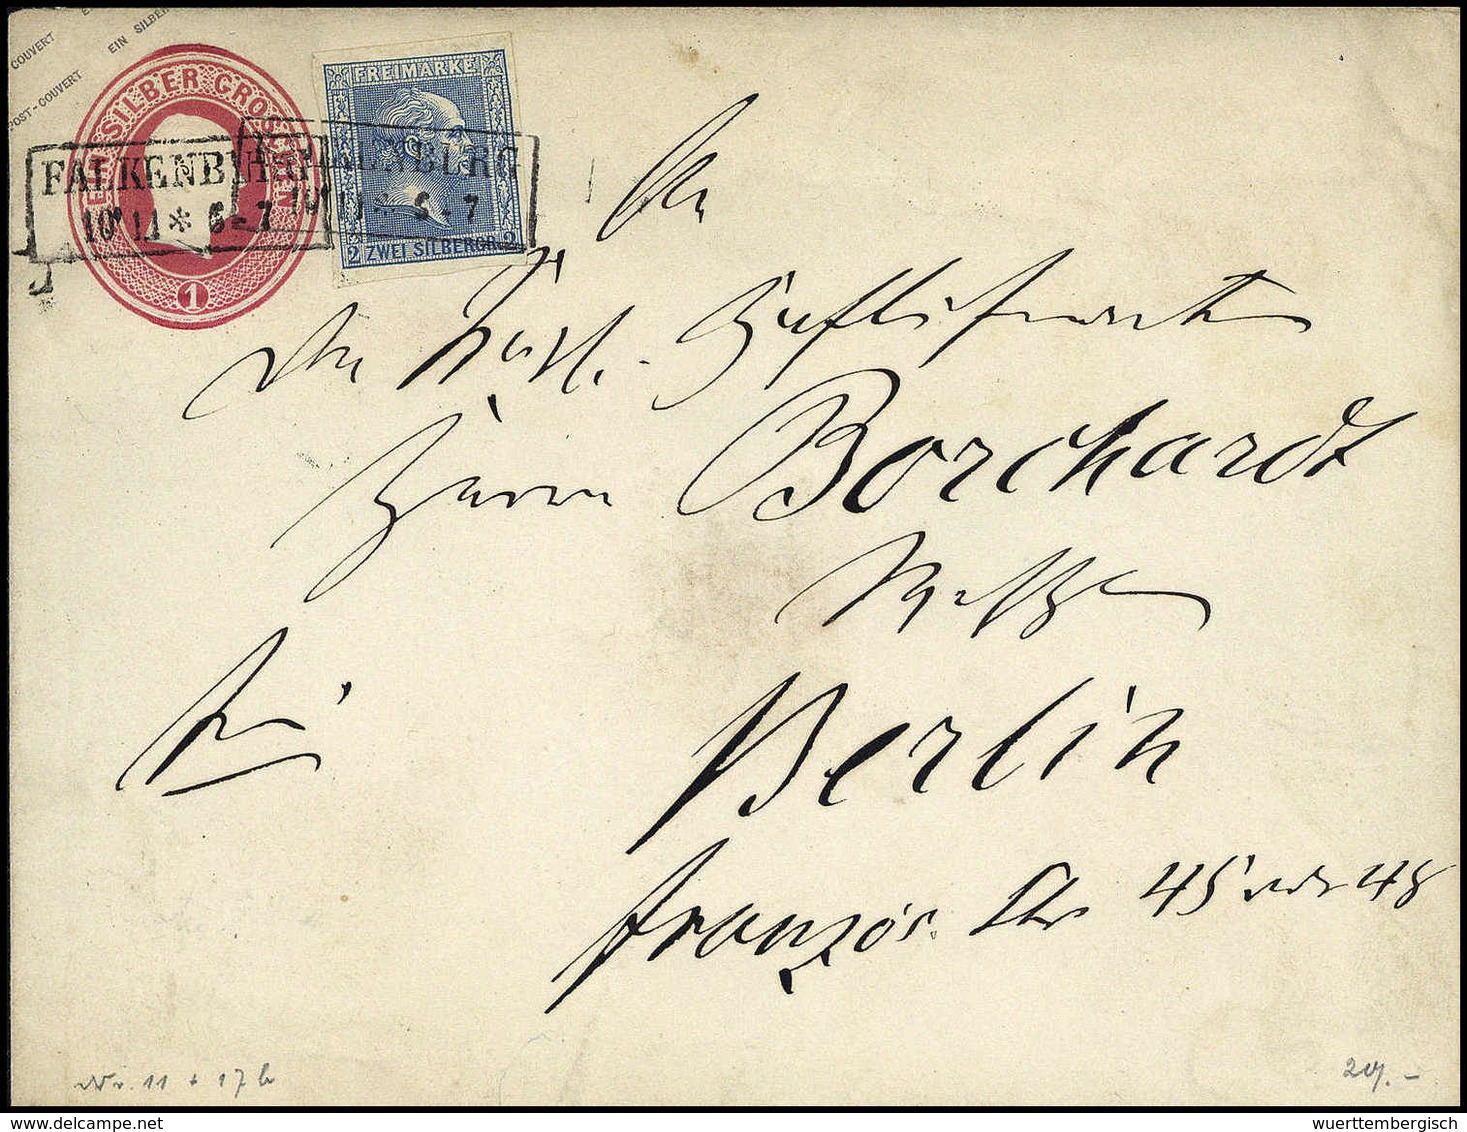 COUVERT
EIN SILBER
POST-COUVERT
EIN SILBER GROSCHEN
1
FREIMARKE
2 ZWEI SILBERGR. 2
FALKENBURG
10 11 * 6-7
FALKENBURG
10 11 * 6-7
An
den Königl.
Herrn Borchardt
Berlin
frei
Französ. Str 45 oder 48
Nr. 11 + 17b
20,-
delcampe.net
wuerttembergisch